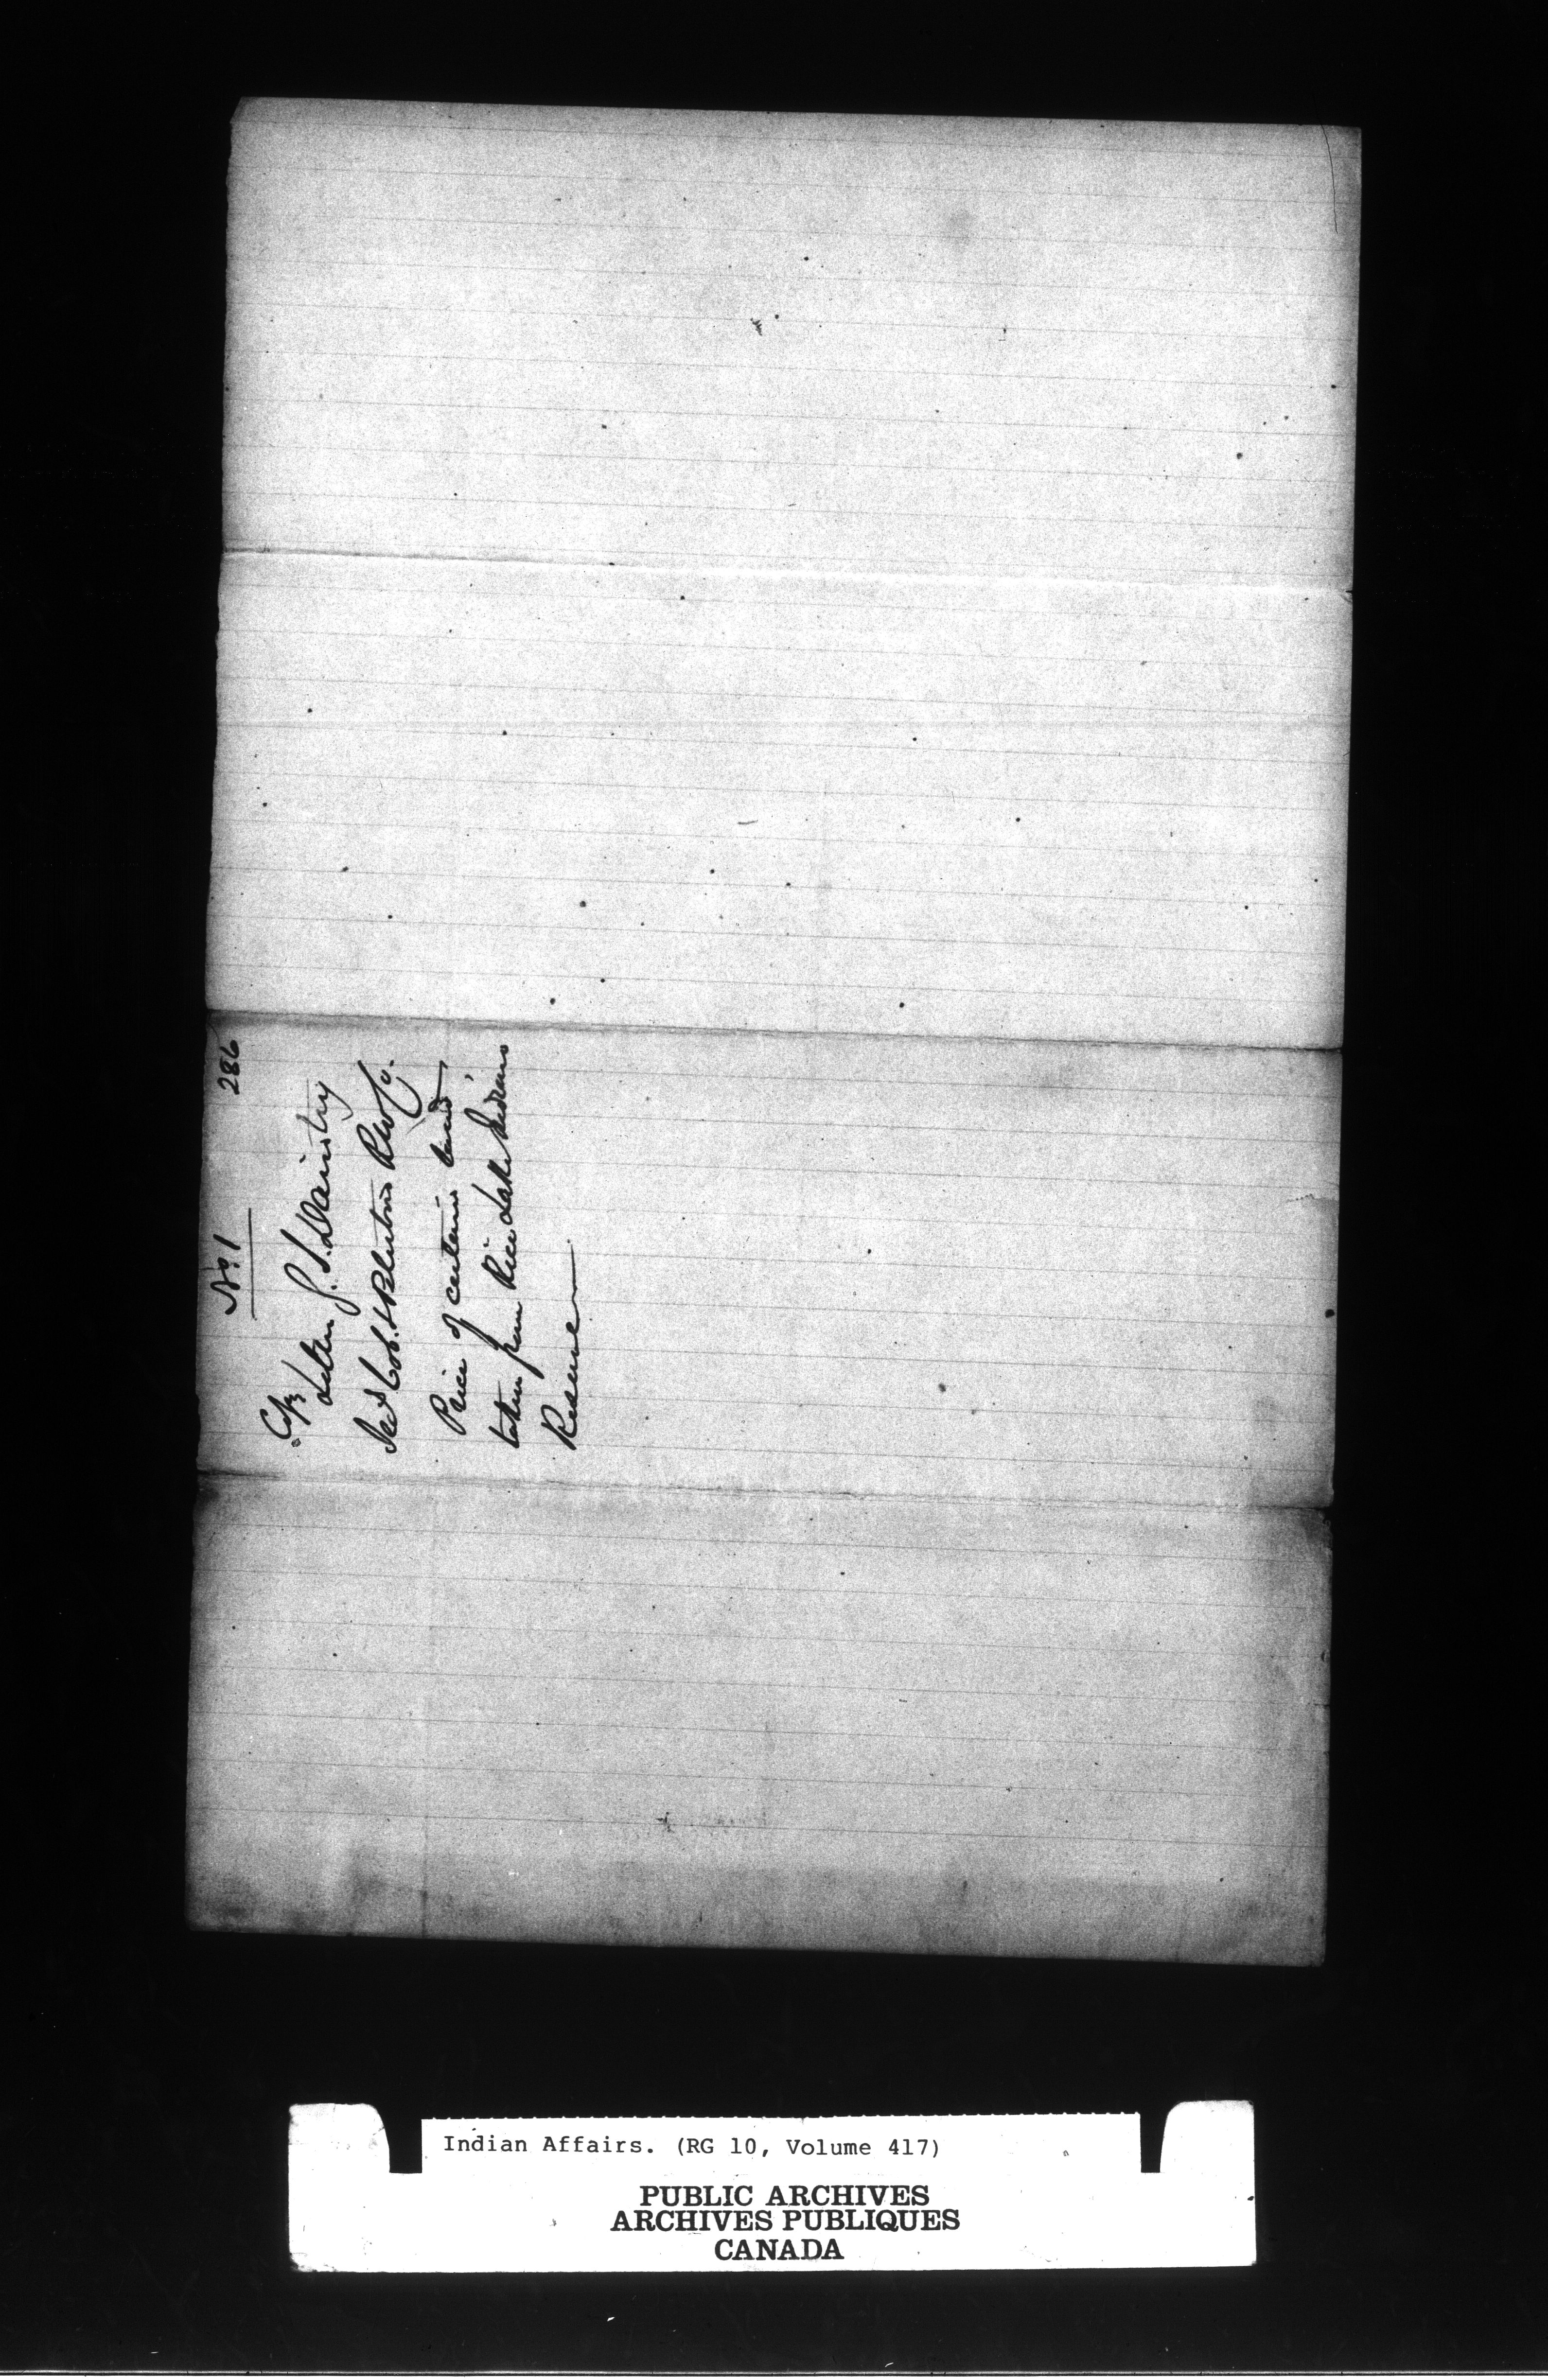 286
No. 1
Copy
Letter J. S. Dainstry
Sec Cob. & Bluton Rlw Cy.
Price of certain land
taken from Rice Lake Indians
Reserve
Indian Affairs. (RG 10, Volume 417)
PUBLIC ARCHIVES
ARCHIVES PUBLIQUES
CANADA